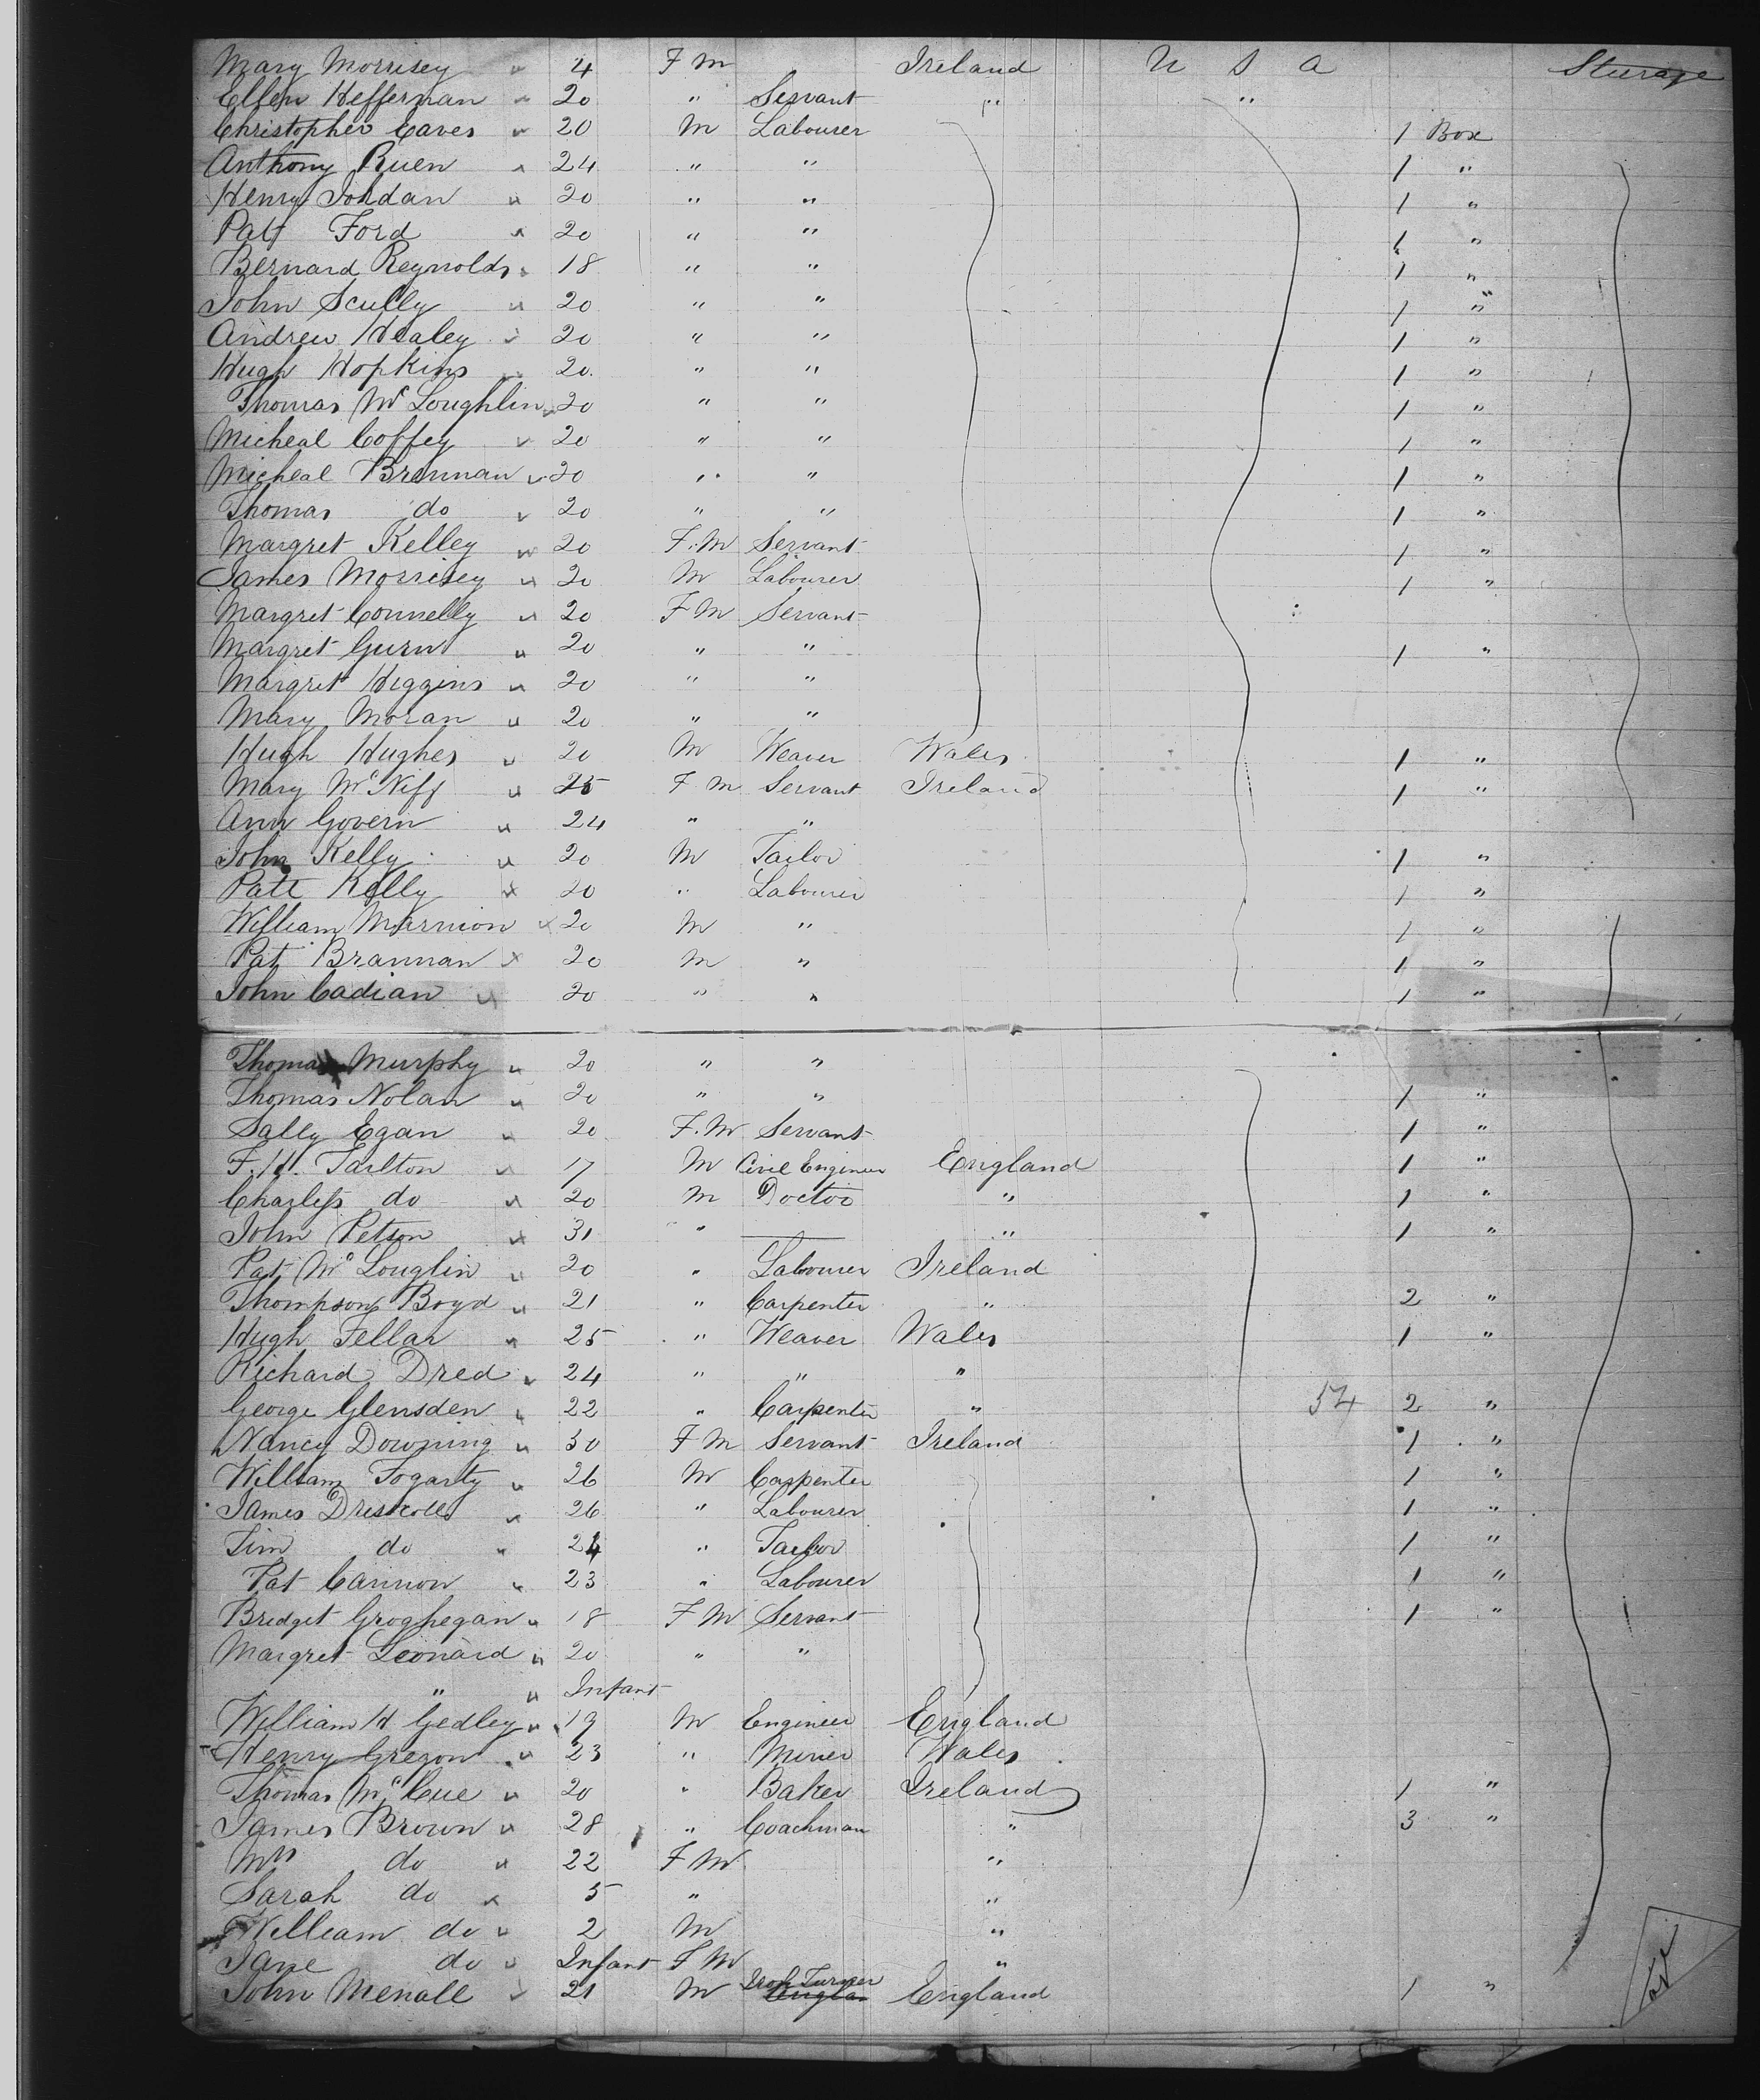 Mary Morrisey 4 F M Ireland U S A Sturage
Ellen Hefferman 20 " Servant " "
Christopher Eaves 20 M Labourer 1 Box
Anthony Ruen 24 " " 1 "
Henry Jordan 20 " " 1 "
Patt Ford 20 " " 1 "
Bernard Reynolds 18 " " 1 "
John Scully 20 " " 1 "
Andrew Healey 20 " " 1 "
Hugh Hopkins 20 " " 1 "
Thomas Mc Loughlin 20 " " 1 "
Micheal Coffey 20 " " 1 "
Micheal Brennan 20 " " 1 "
Thomas do 20 " " 1 "
Margret Kelley 20 F.M Servant 1 "
James Morrisey 20 M Labourer 1 "
Margret Connelly 20 F M Servant
Margret Gurn 20 " " 1 "
Margret Higgins 20 " "
Mary Moran 20 " "
Hugh Hughes 20 M Weaver Wales 1 "
Mary Mc Niff 25 F M Servant Ireland 1 "
Ann Govern 24 " "
John Kelly 20 M Tailor 1 "
Patt Kelly 20 " Labourer 1 "
William Marnion 20 M " 1 "
Pat Brannan 20 M " 1 "
John Cadian 20 " " 1 "
Thomas Murphy 20 " "
Thomas Nolan 20 " " 1 "
Sally Egan 20 F.M Servant 1 "
F. H. Tarlton 17 M Civil Engineer England 1 "
Charless do 20 M Doctor " 1 "
John Petson 31 " " 1 "
Pat Mc Louglin 20 " Labourer Ireland
Thompson Boyd 21 " Carpenter " 2 "
Hugh Fellar 25 " Weaver Wales 1 "
Richard Dred 24 " " "
George Glensden 22 " Carpenter " 54 2 "
Nancy Downing 30 F M Servant Ireland 1 "
William Fogarty 26 M Carpenter 1 "
James Driscoll 26 " Labourer 1 "
Tim do 24 " Tailor 1 "
Pat Cannon 23 " Labourer 1 "
Bridget Groghegan 18 F M Servant 1 "
Margret Leonard 20 " "
" Infant
William H Gedley 19 M Engineer England
Henry Gregon 23 " Miner Wales
Thomas Mc Cue 20 " Baker Ireland 1 "
James Brown 28 " Coachman " 3 "
Mrs do 22 F M "
Sarah do 5 " "
William do 2 M "
Jane do Infant F M "
John Menall 21 M Iron Turner England 1 "